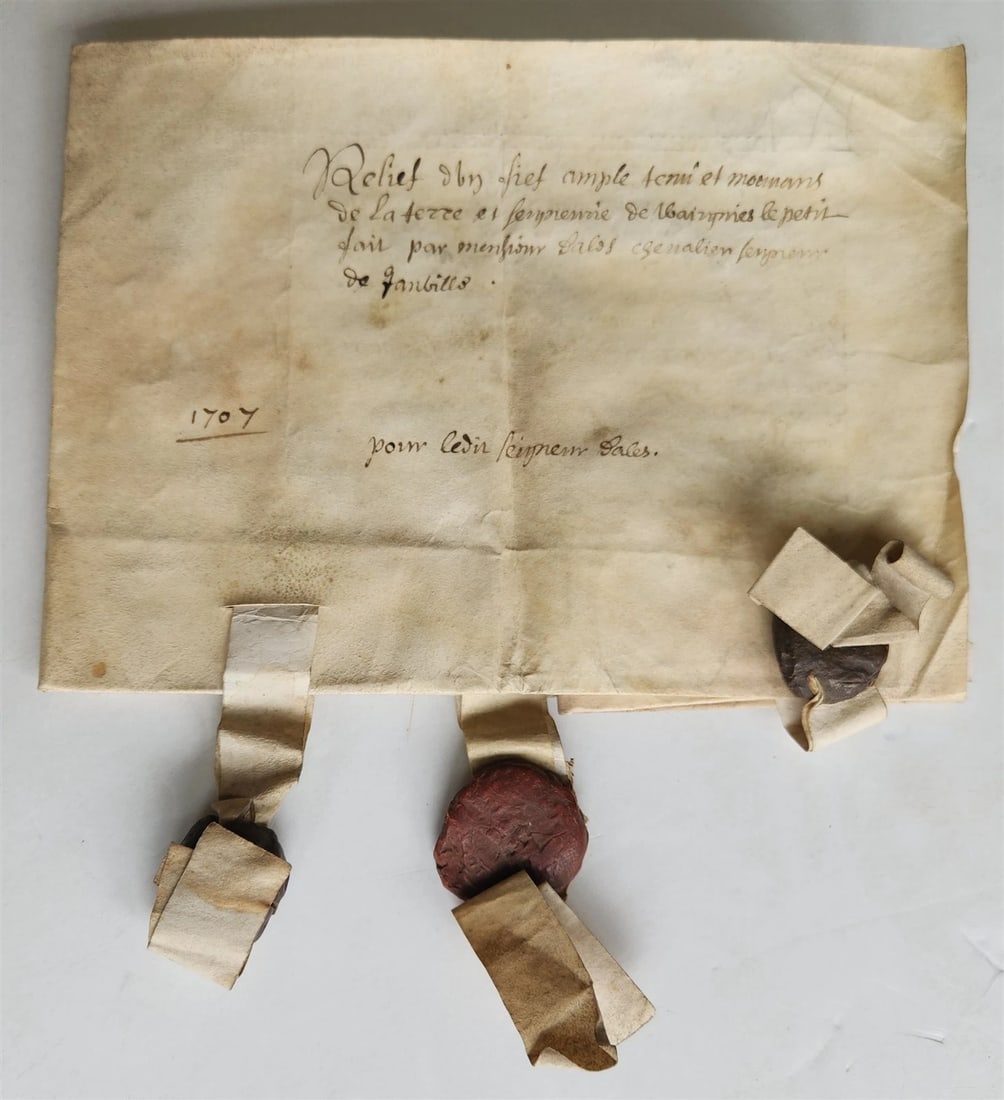 Relief dun fief ample tenu et mouvans
de La terre et seigneurie de Wairgnies le petit
fait par monsieur dalés chevalier seigneur
de Janville.
1707
pour ledit seigneur dales.